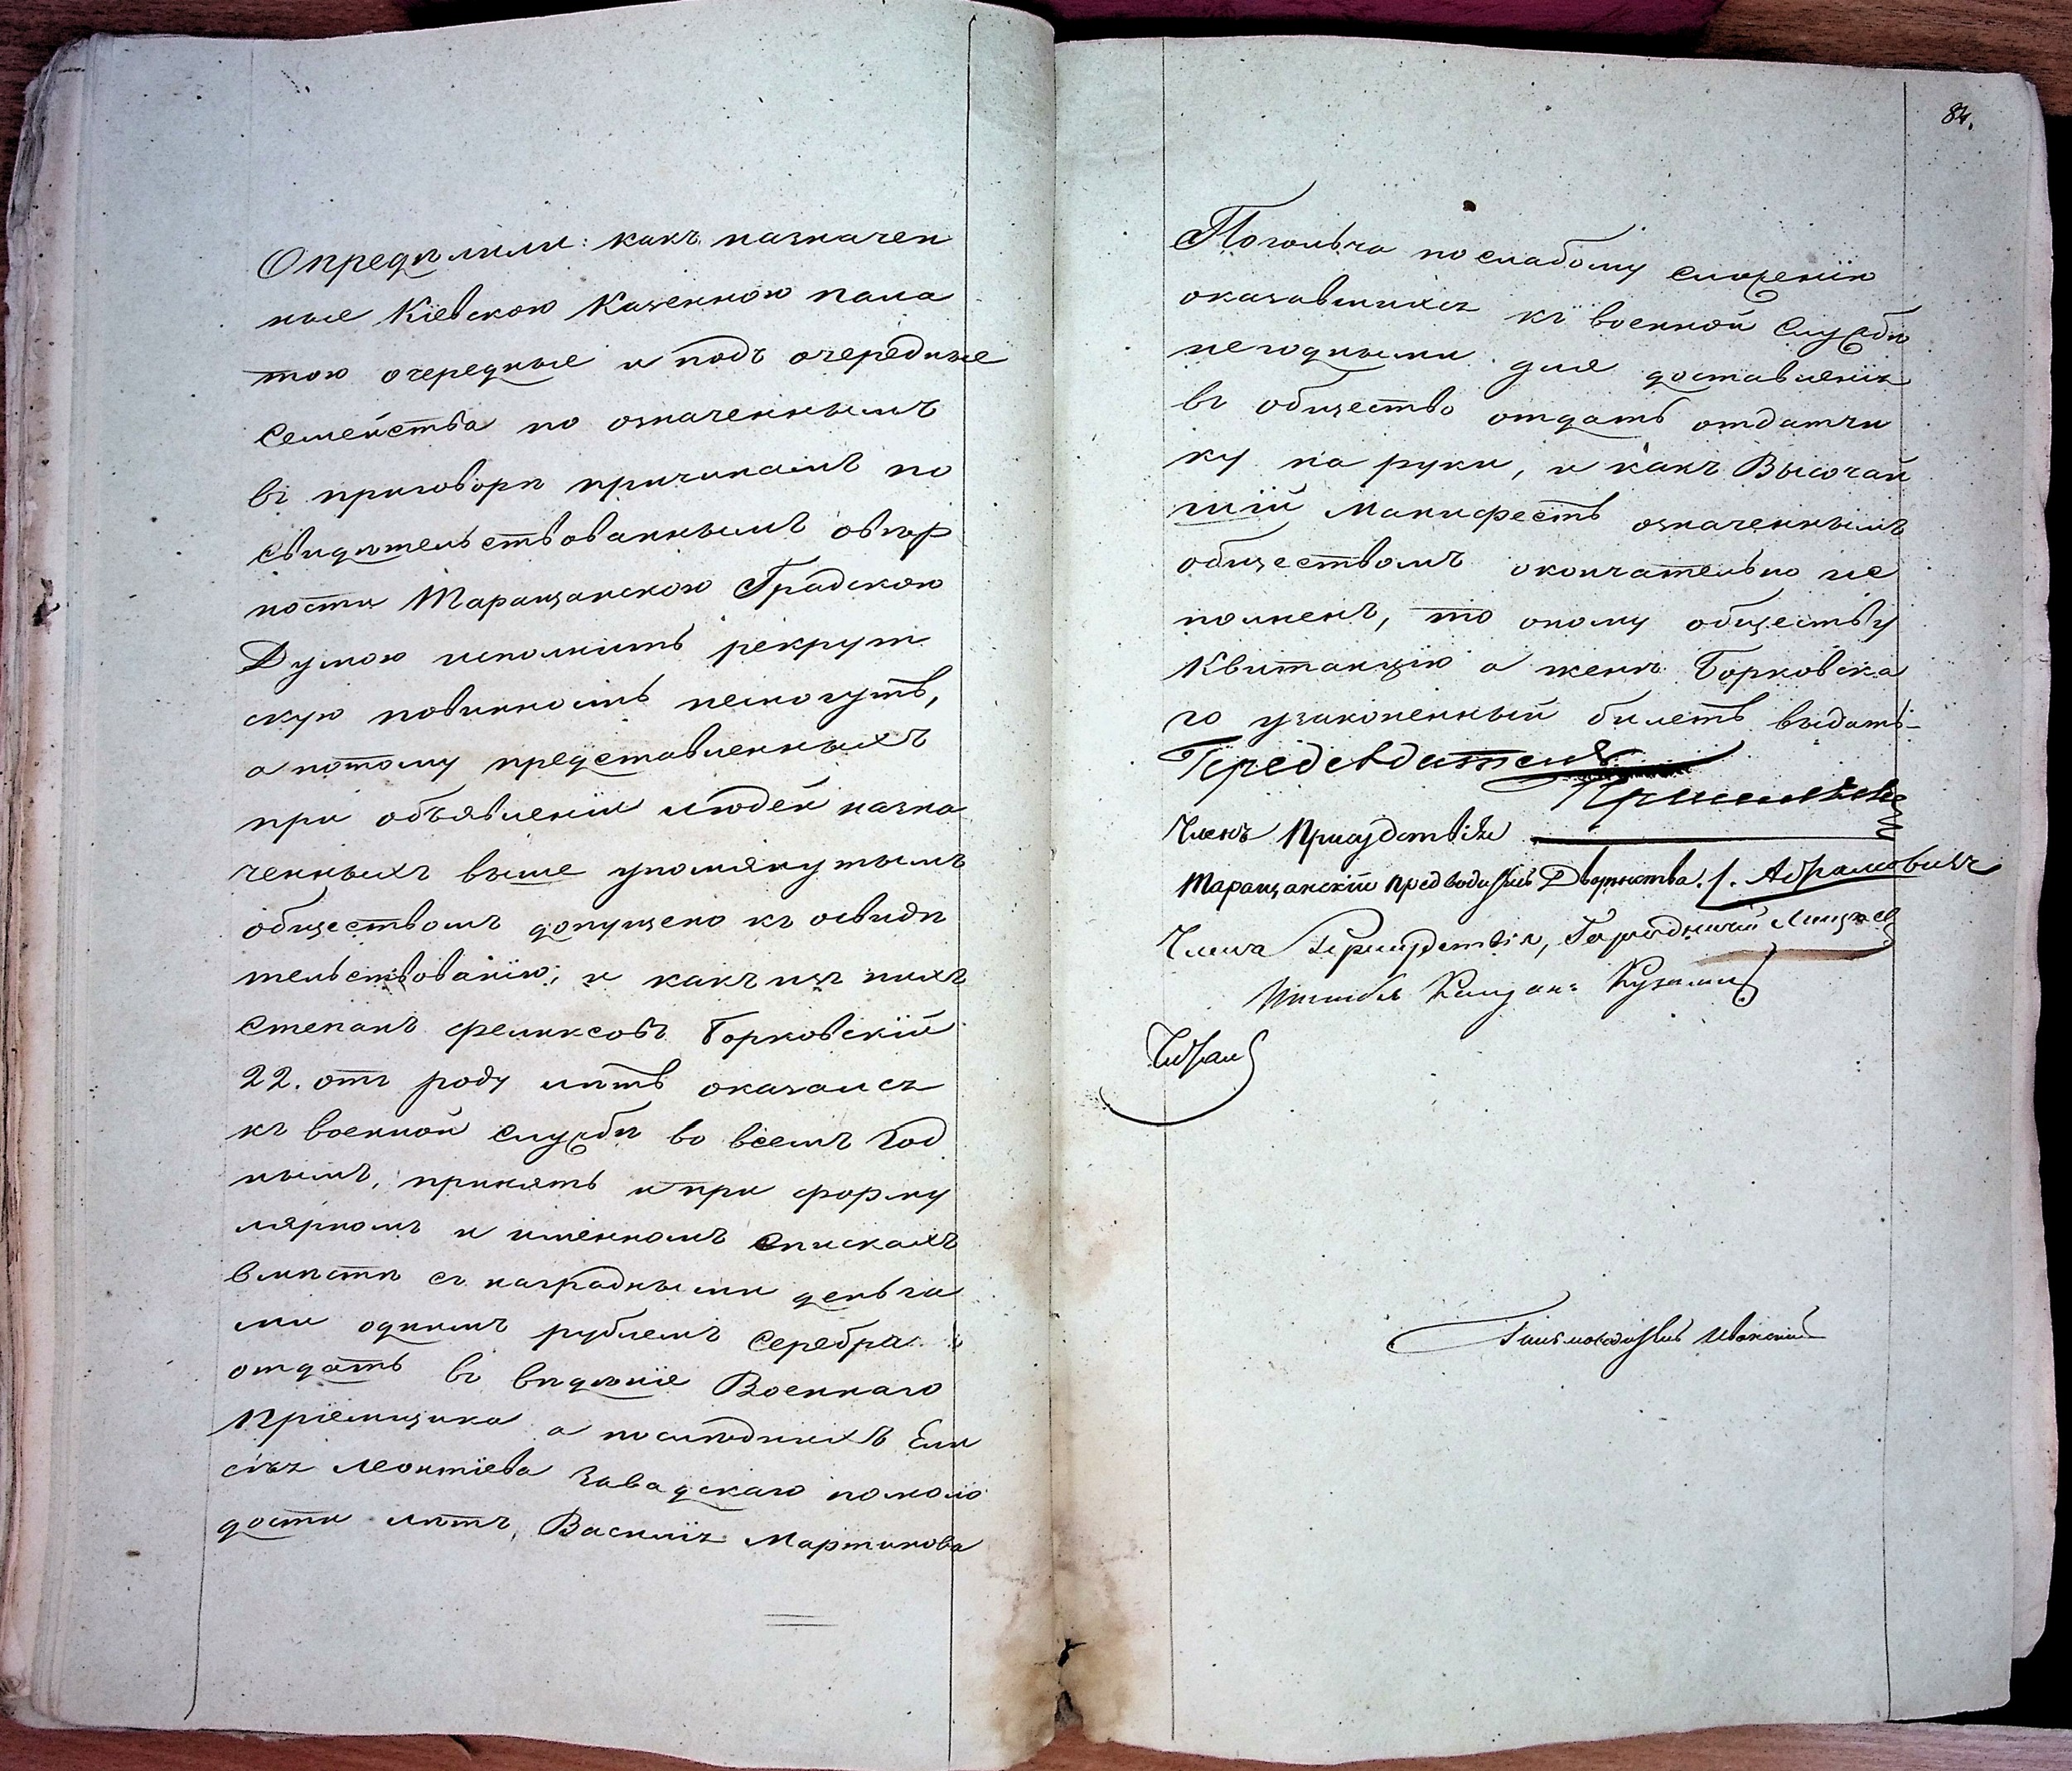 Опредѣлили: какъ назначен
ные Кіевскою Казенною пала
тою очередные и подъ очередные
семейства по означеннымъ
въ приговорѣ причинамъ по
свидѣтельствованнымъ обѣр
ности Таращанскою Градскою
Думою исполнить рекрут
скую повинность немогутъ,
а потому представленныхъ
при объявленіи людей назна
ченныхъ выше упомянутымъ
обществомъ допущено къ освидѣ
тельствованію; и какъ изъ нихъ
Степанъ Феликсовъ Борковскій
22. отъ роду лѣтъ оказался
къ военной службѣ во всемъ год
нымъ, принять и при форму
лярномъ и именномъ спискахъ
вмѣстѣ съ наградными деньга
ми однимъ рублемъ серебра
отдать въ вѣденіе Военнаго
Пріемщика а последнихъ Ели
сѣя Леонтіева Завадскаго помоло
дости лѣтъ, Василія Мартинова
84.
Погольча послабому сложенію
оказавшихся къ военной Службѣ
негодными для доставленія
въ общество отдать отдатчи
ку на руки, и какъ Высочай
шій Манифестъ означеннымъ
обществомъ окончательно ис
полненъ, то оному обществу
Квитанцію а женѣ Борковска
го узаконенный билетъ выдать
Председатель
Членъ Присудствія
Таращанскій предводитель Дворянства. Абрамовичъ
Члена Присудствія, Городничій
Штабъ